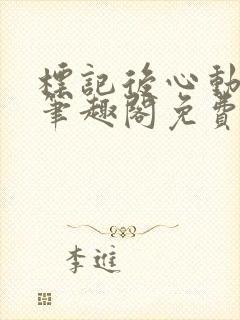 標記後心動
筆趣閣免費
李進